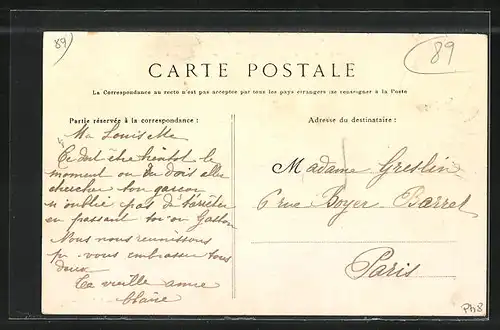 89
89
CARTE POSTALE
La Correspondance au recto n'est pas acceptée par tous les pays étrangers (se renseigner à la Poste
Partie réservée à la correspondance :
Adresse du destinataire :
Ma Louisette
Ce doit être bientôt le
moment où tu dois aller
chercher ton garçon
n'oublie pas de t'arrêter
en passant toi ou Gaston
Nous nous réunissons
pr vous embrasser tous
deux
Ta vieille amie
Madame Greslin
6 rue Boyer Barret
Paris
PH8